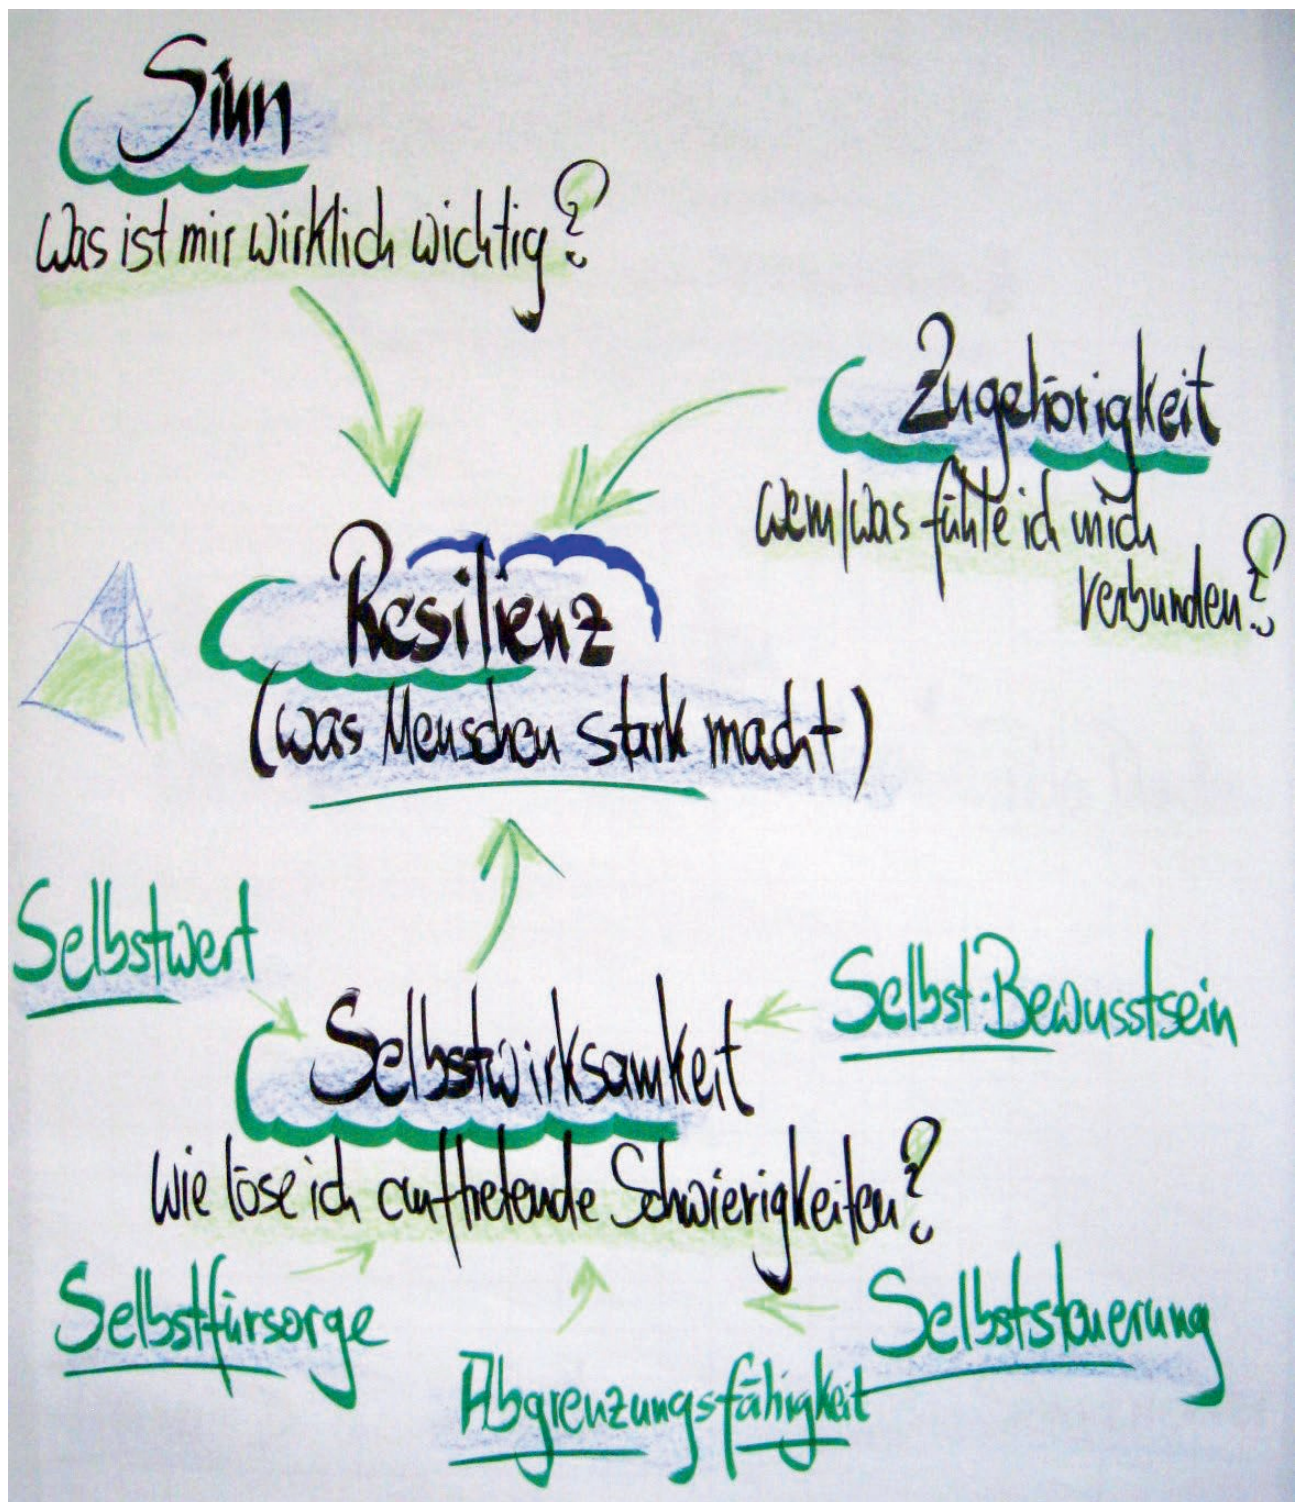 Sinn
Was ist mir wirklich wichtig?
Zugehörigkeit
wem/was fühle ich mich
verbunden?
Resilienz
(was Menschen stark macht)
Selbstwert
Selbst-Bewusstsein
Selbstwirksamkeit
wie löse ich auftretende Schwierigkeiten?
Selbstfürsorge
Selbststeuerung
Abgrenzungsfähigkeit